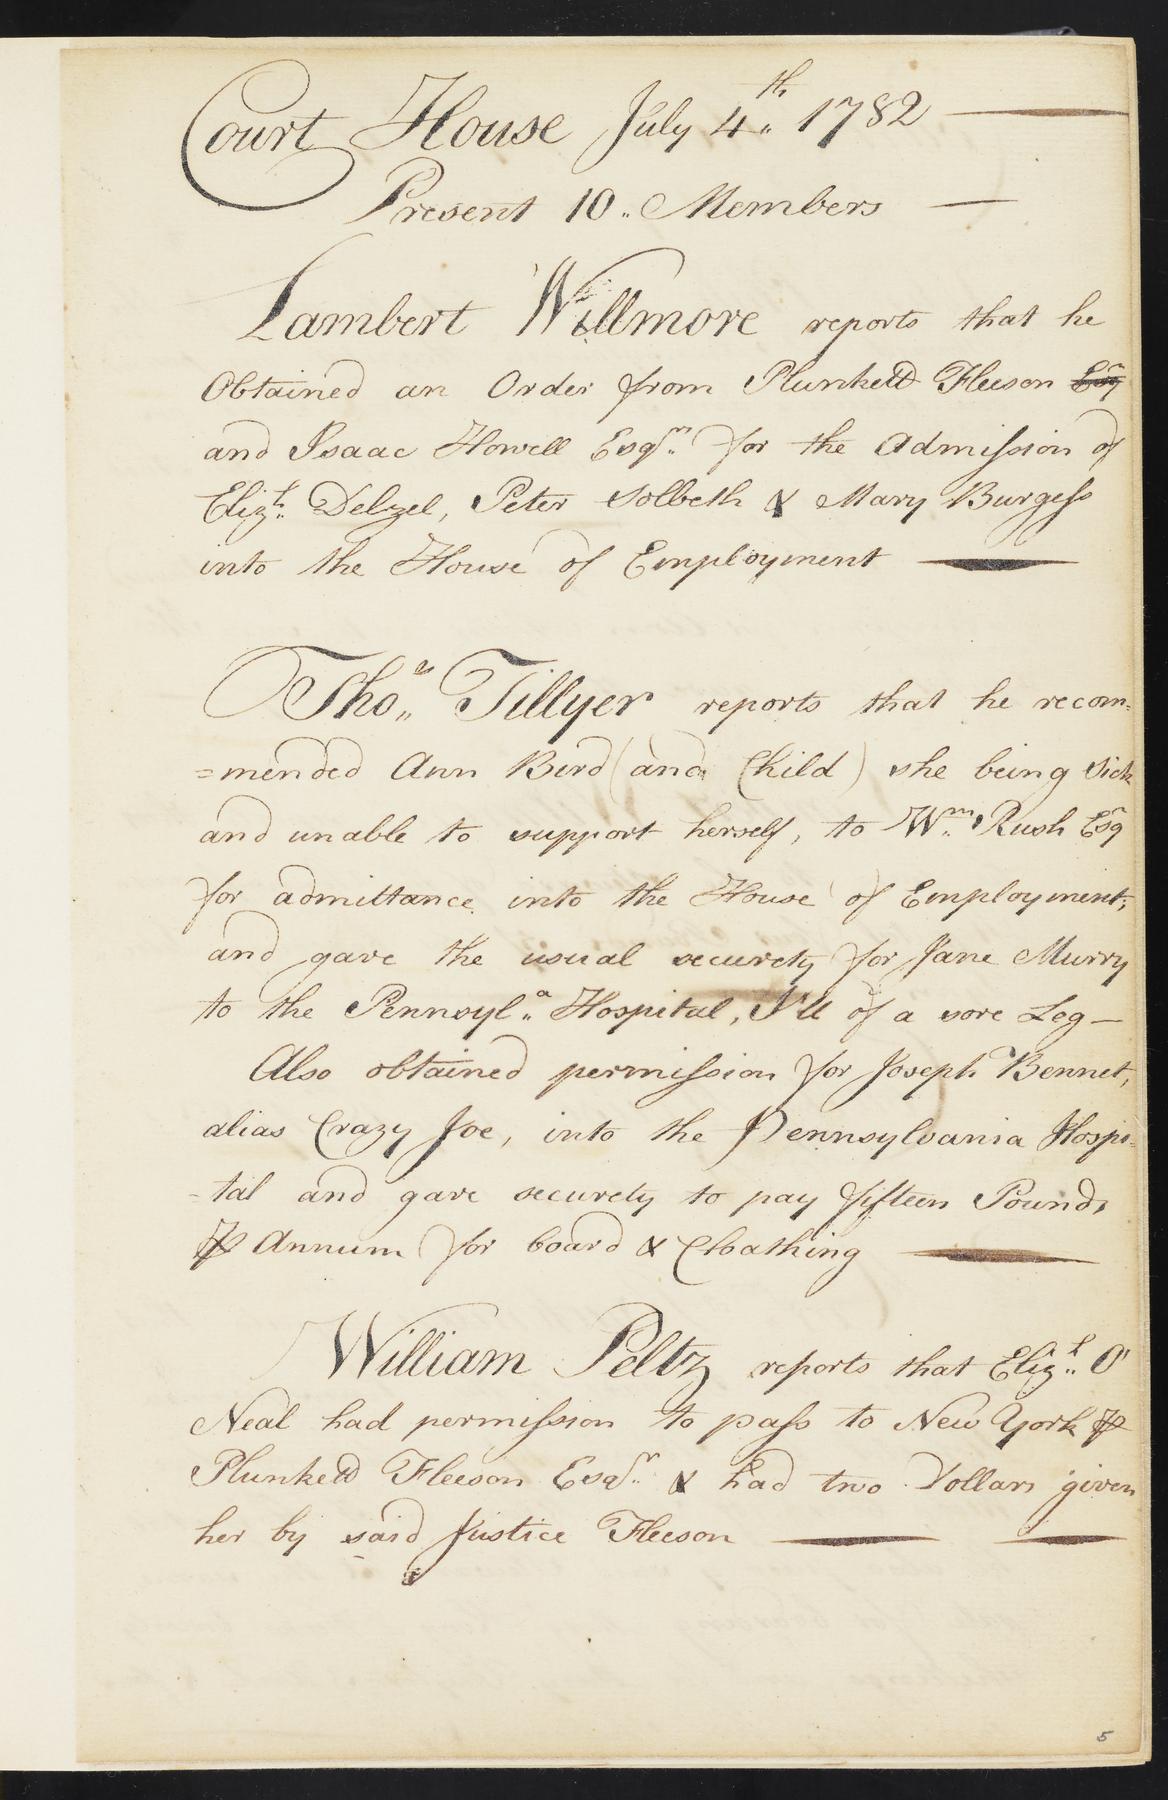 Court House July 4th.. 1782 —
Present 10.. Members —
Lambert Willmore reports that he
Obtained an Order from Plunkett Fleeson Esqr
and Isaac Howell Esqrs.. for the Admission of
Elizth.. Delzel, Peter Solbeth & Mary Burgess
into the House of Employment —
Thos.. Tillyer reports that he recom=
=mended Ann Bird (and Child) she being Sick
and unable to support herself, to Wm.. Rush Esqr
for admittance into the House of Employment,
and gave the usual securety for Jane Murry
to the Pennsyla.. Hospital, Ill of a sore Leg —
Also obtained permission for Joseph Bennet,
alias Crazy Joe, into the Pennsylvania Hospi=
=tal and gave securety to pay fifteen Pounds
⅌ Annum for board & Cloathing —
William Peltz reports that Elizth.. O'
Neal had permission to pass to New York ⅌
Plunkett Fleeson Esqr.. & had two Dollars given
her by said Justice Fleeson — —
5